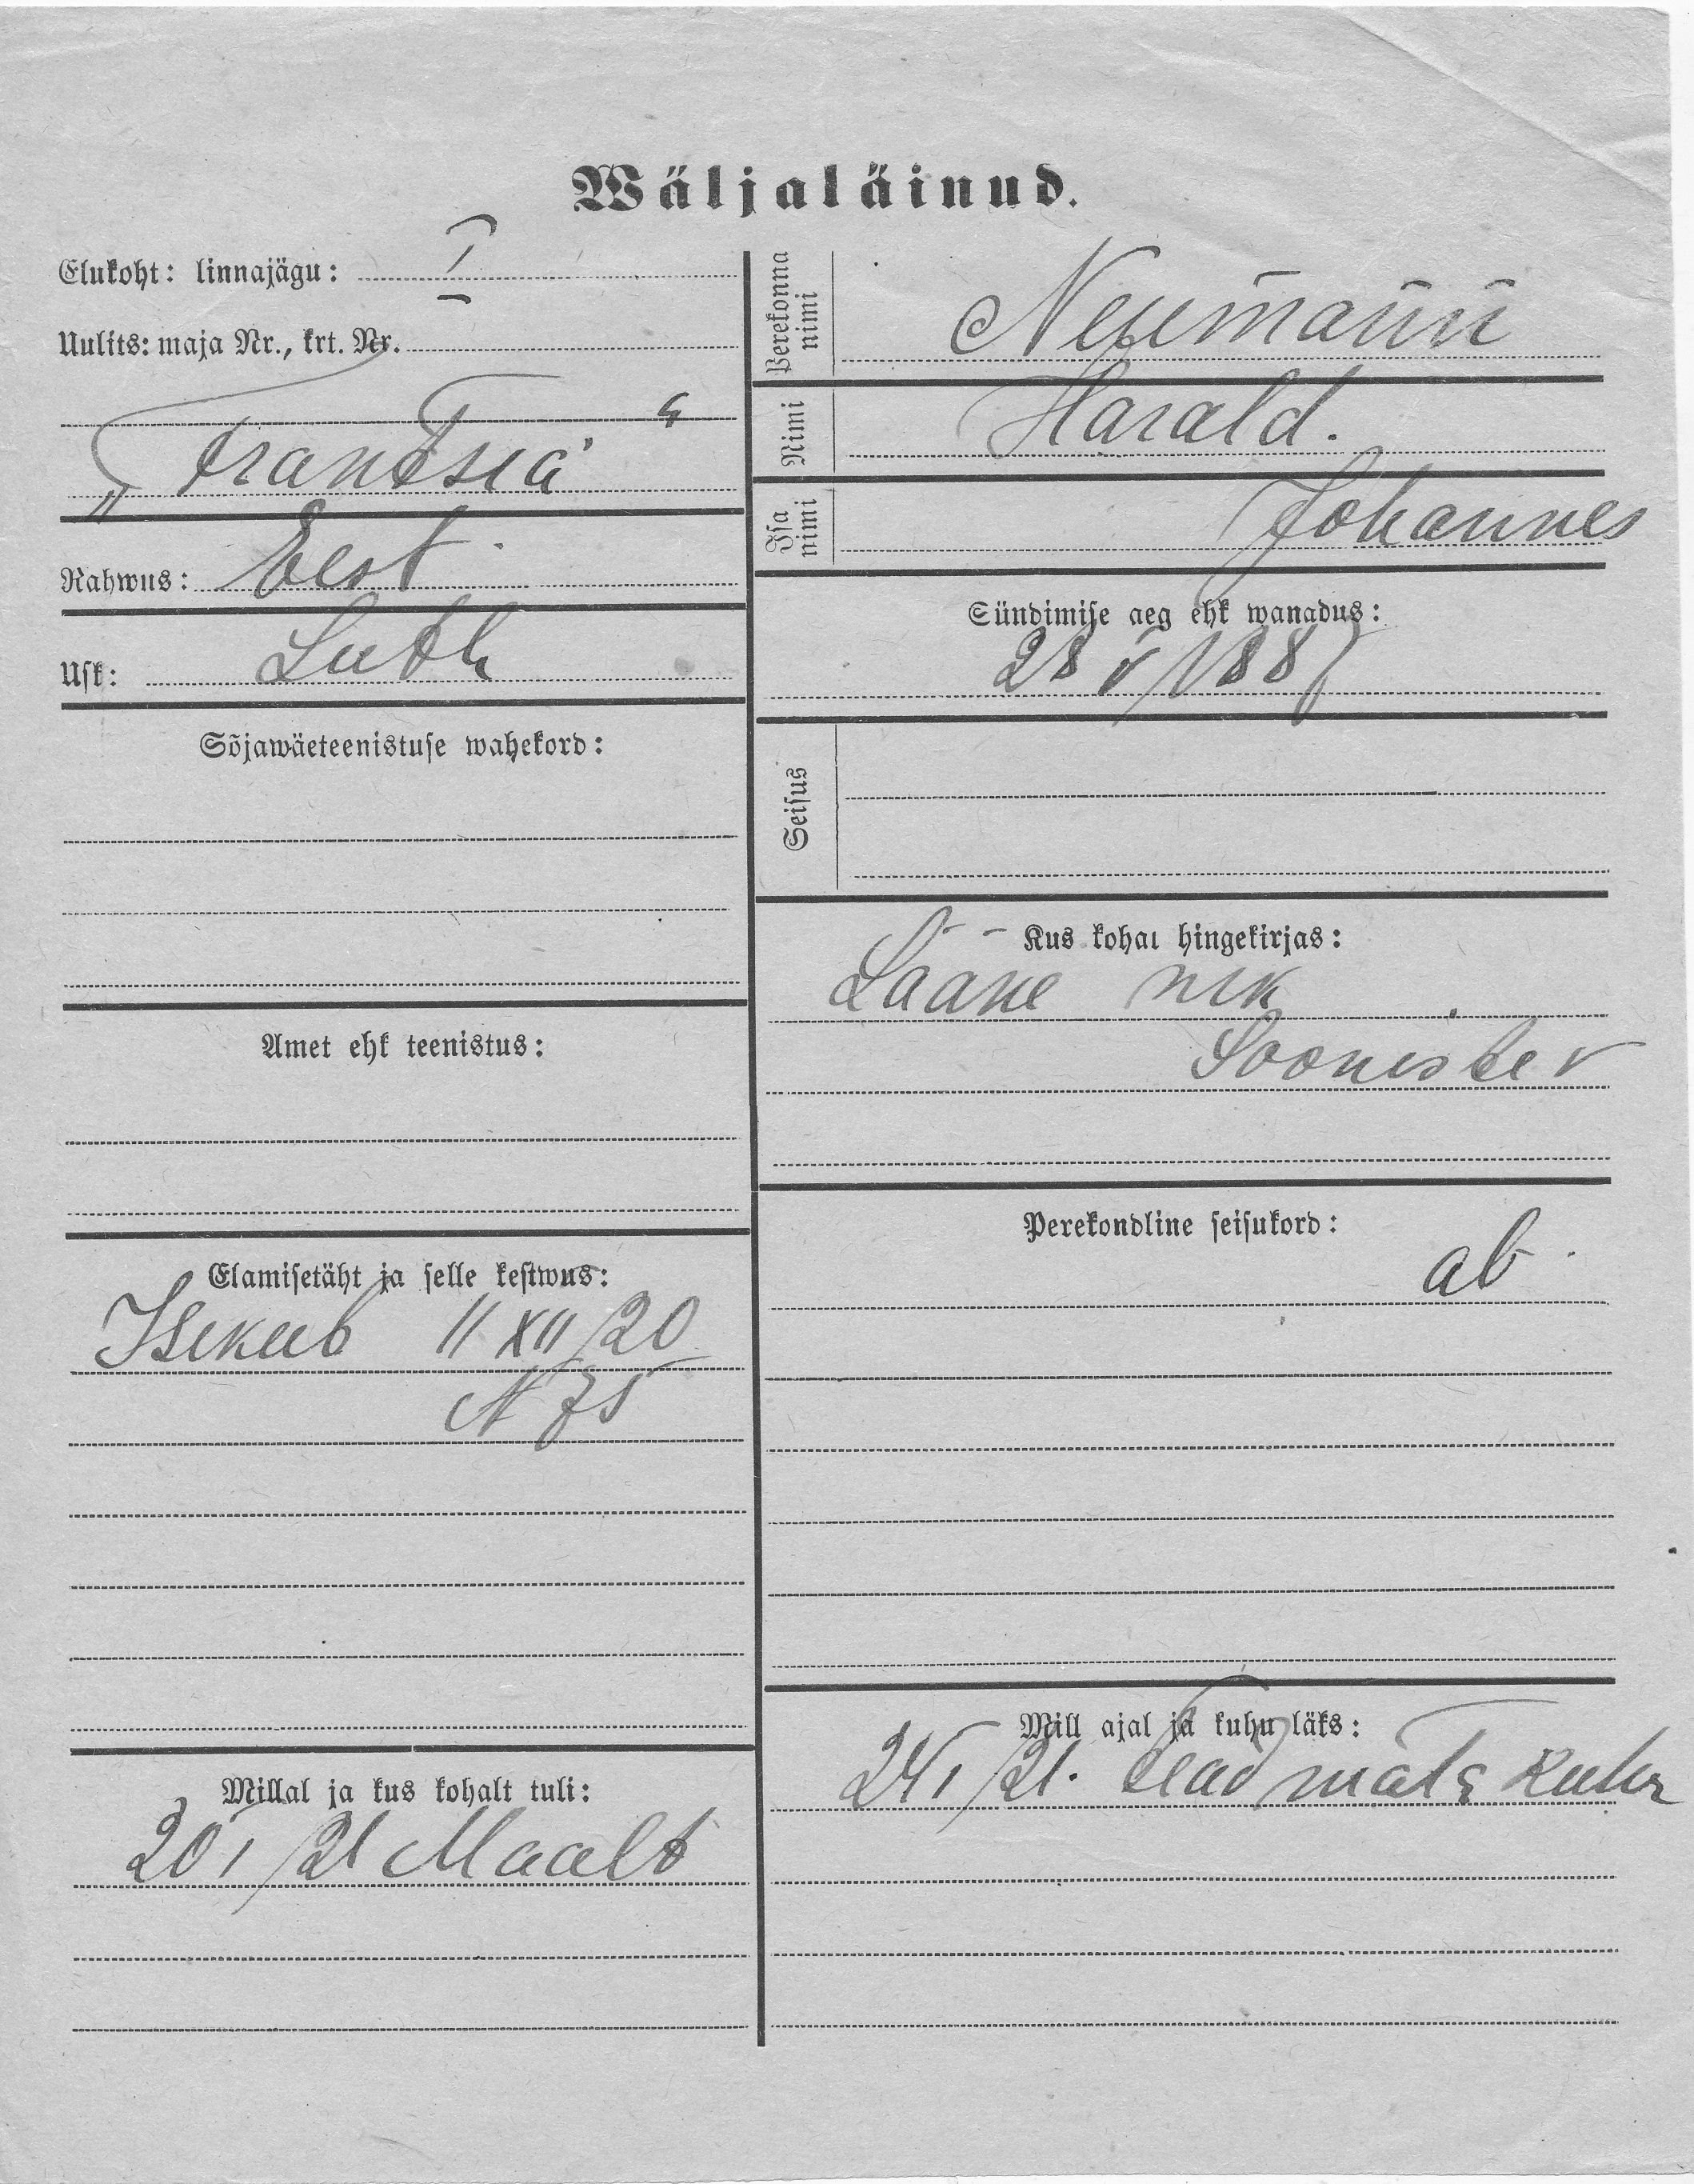 Wäljaläinud.
Elukoht: linnajägu: I
Uulits: maja Nr., krt. Nr.
„Frantsia“
Rahwus: Eest
Usk: Luth
Sõjawäeteenistuse wahekord:
Amet ehk teenistus:
Elamisetäht ja selle kestwus:
Isikub 11 XII/20
N 75
Millal ja kus kohalt tuli:
20 I/21 Maalt
Perekonna nimi Neumann
Nimi Harald.
Isa nimi Johannes
Sündimise aeg ehk wanadus:
28 V/1887
Seisus
Kus kohal hingekirjas:
Lääne mk
Sooniste v
Perekondline seisukord:
ab.
Mill ajal ja kuhu läks:
24 I/21. Tead mata kuhu